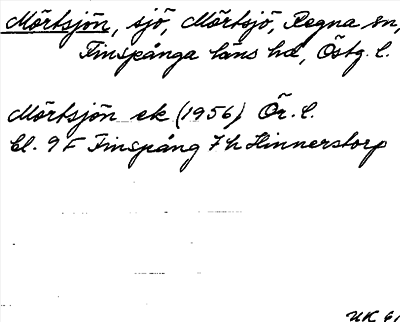 Mörtsjön, sjö, Mörtsjö, Regna sn,
Finspånga läns hd, Östg. l.
Mörtsjön ek (1956) Ör. l.
bl. 9 F Finspång 7 h Hinnerstorp
UK 61